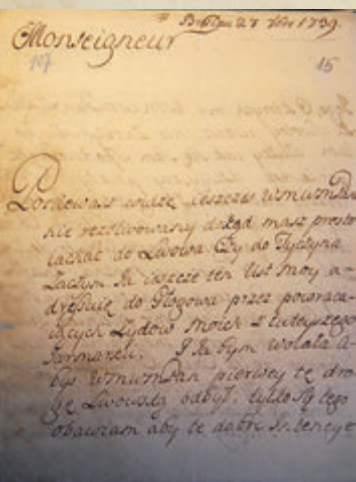 27 1739.
Monseigneur
107
15
Poniewasz widzę ieszcze WMWMPan
nie rezolwowany dokąd masz prosto
iachać do Lwowa czy do Tyczyna
Zaczym Ja ieszcze ten List moy a-
dresuię do Głogowa przez powraca-
iących Lydow moich z tuteyszego
Jarmarku. I Ja bym wolała a-
bys WMWMPan pierwey tę dro-
gę Lwowską odbył, tylko się tego
obawiam aby te dobre Intencye